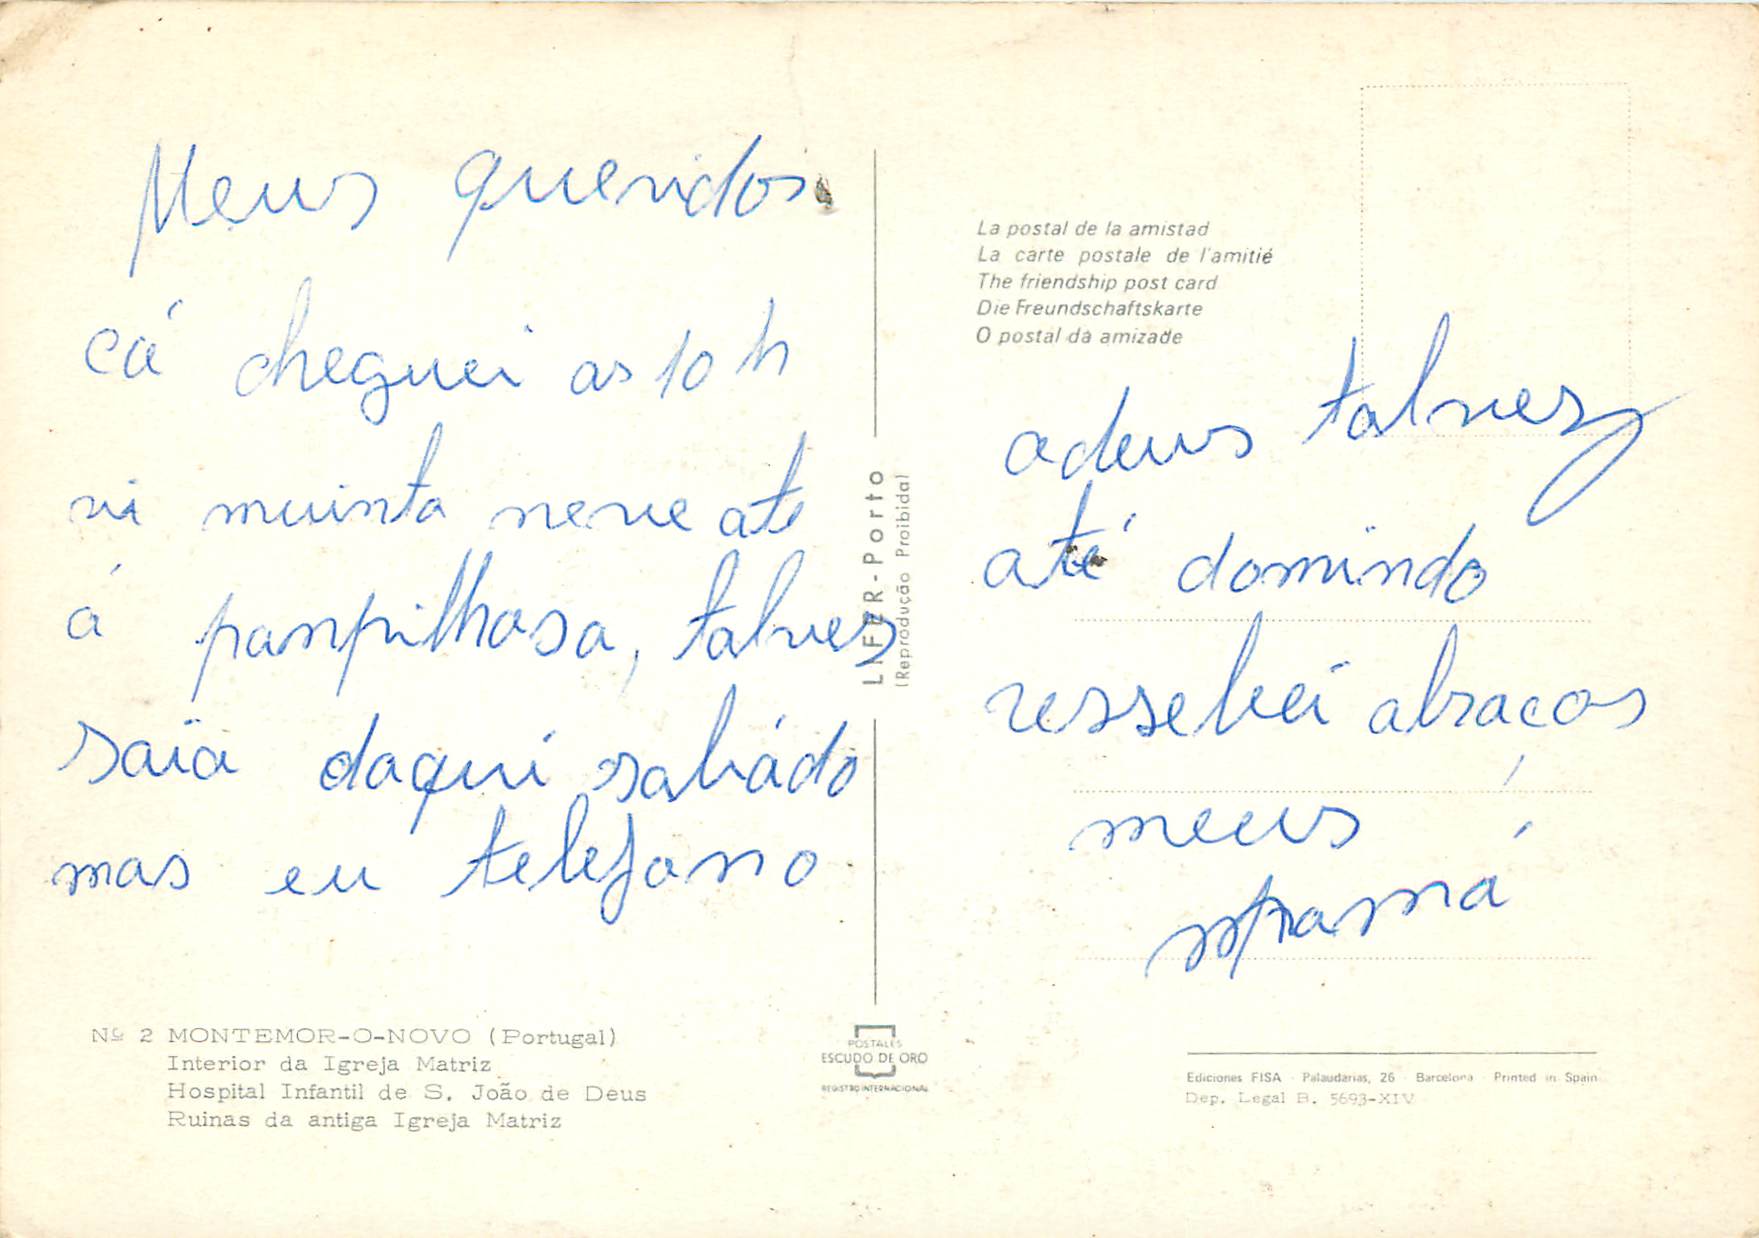 Meus queridos
cá cheguei as 10 h
vi muinta neve até
á panpilhosa, talvez
saïa daqui sabádo
mas eu telefono
Nº 2 MONTEMOR-O-NOVO (Portugal)
Interior da Igreja Matriz
Hospital Infantil de S. João de Deus
Ruinas da antiga Igreja Matriz
LIFER-Porto
(Reprodução Proibida)
POSTALES
ESCUDO DE ORO
REGISTRO INTERNACIONAL
La postal de la amistad
La carte postale de l'amitié
The friendship post card
Die Freundschaftskarte
O postal da amizade
adeus talvez
até domindo
ressebei abracos
meus
Ediciones FISA - Palaudarias, 26 - Barcelona - Printed in Spain
Dep. Legal B. 5693-XIV